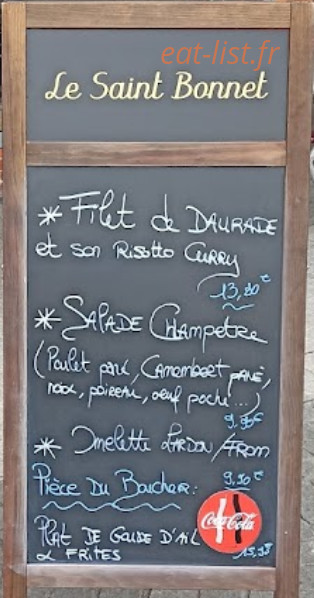 eat-list.fr
Le Saint Bonnet
* Filet de DAURADE
et son Risotto CURRY
13,90€
* SALADE CHAMPETRE
(Poulet pané, Camembert pané,
noix, poireau, oeuf poché...)
9,90€
* Omelette LARDON/FROM
Pièce Du Boucher: 9,90€
PLAT DE D'AIL
& FRITES
Coca-Cola